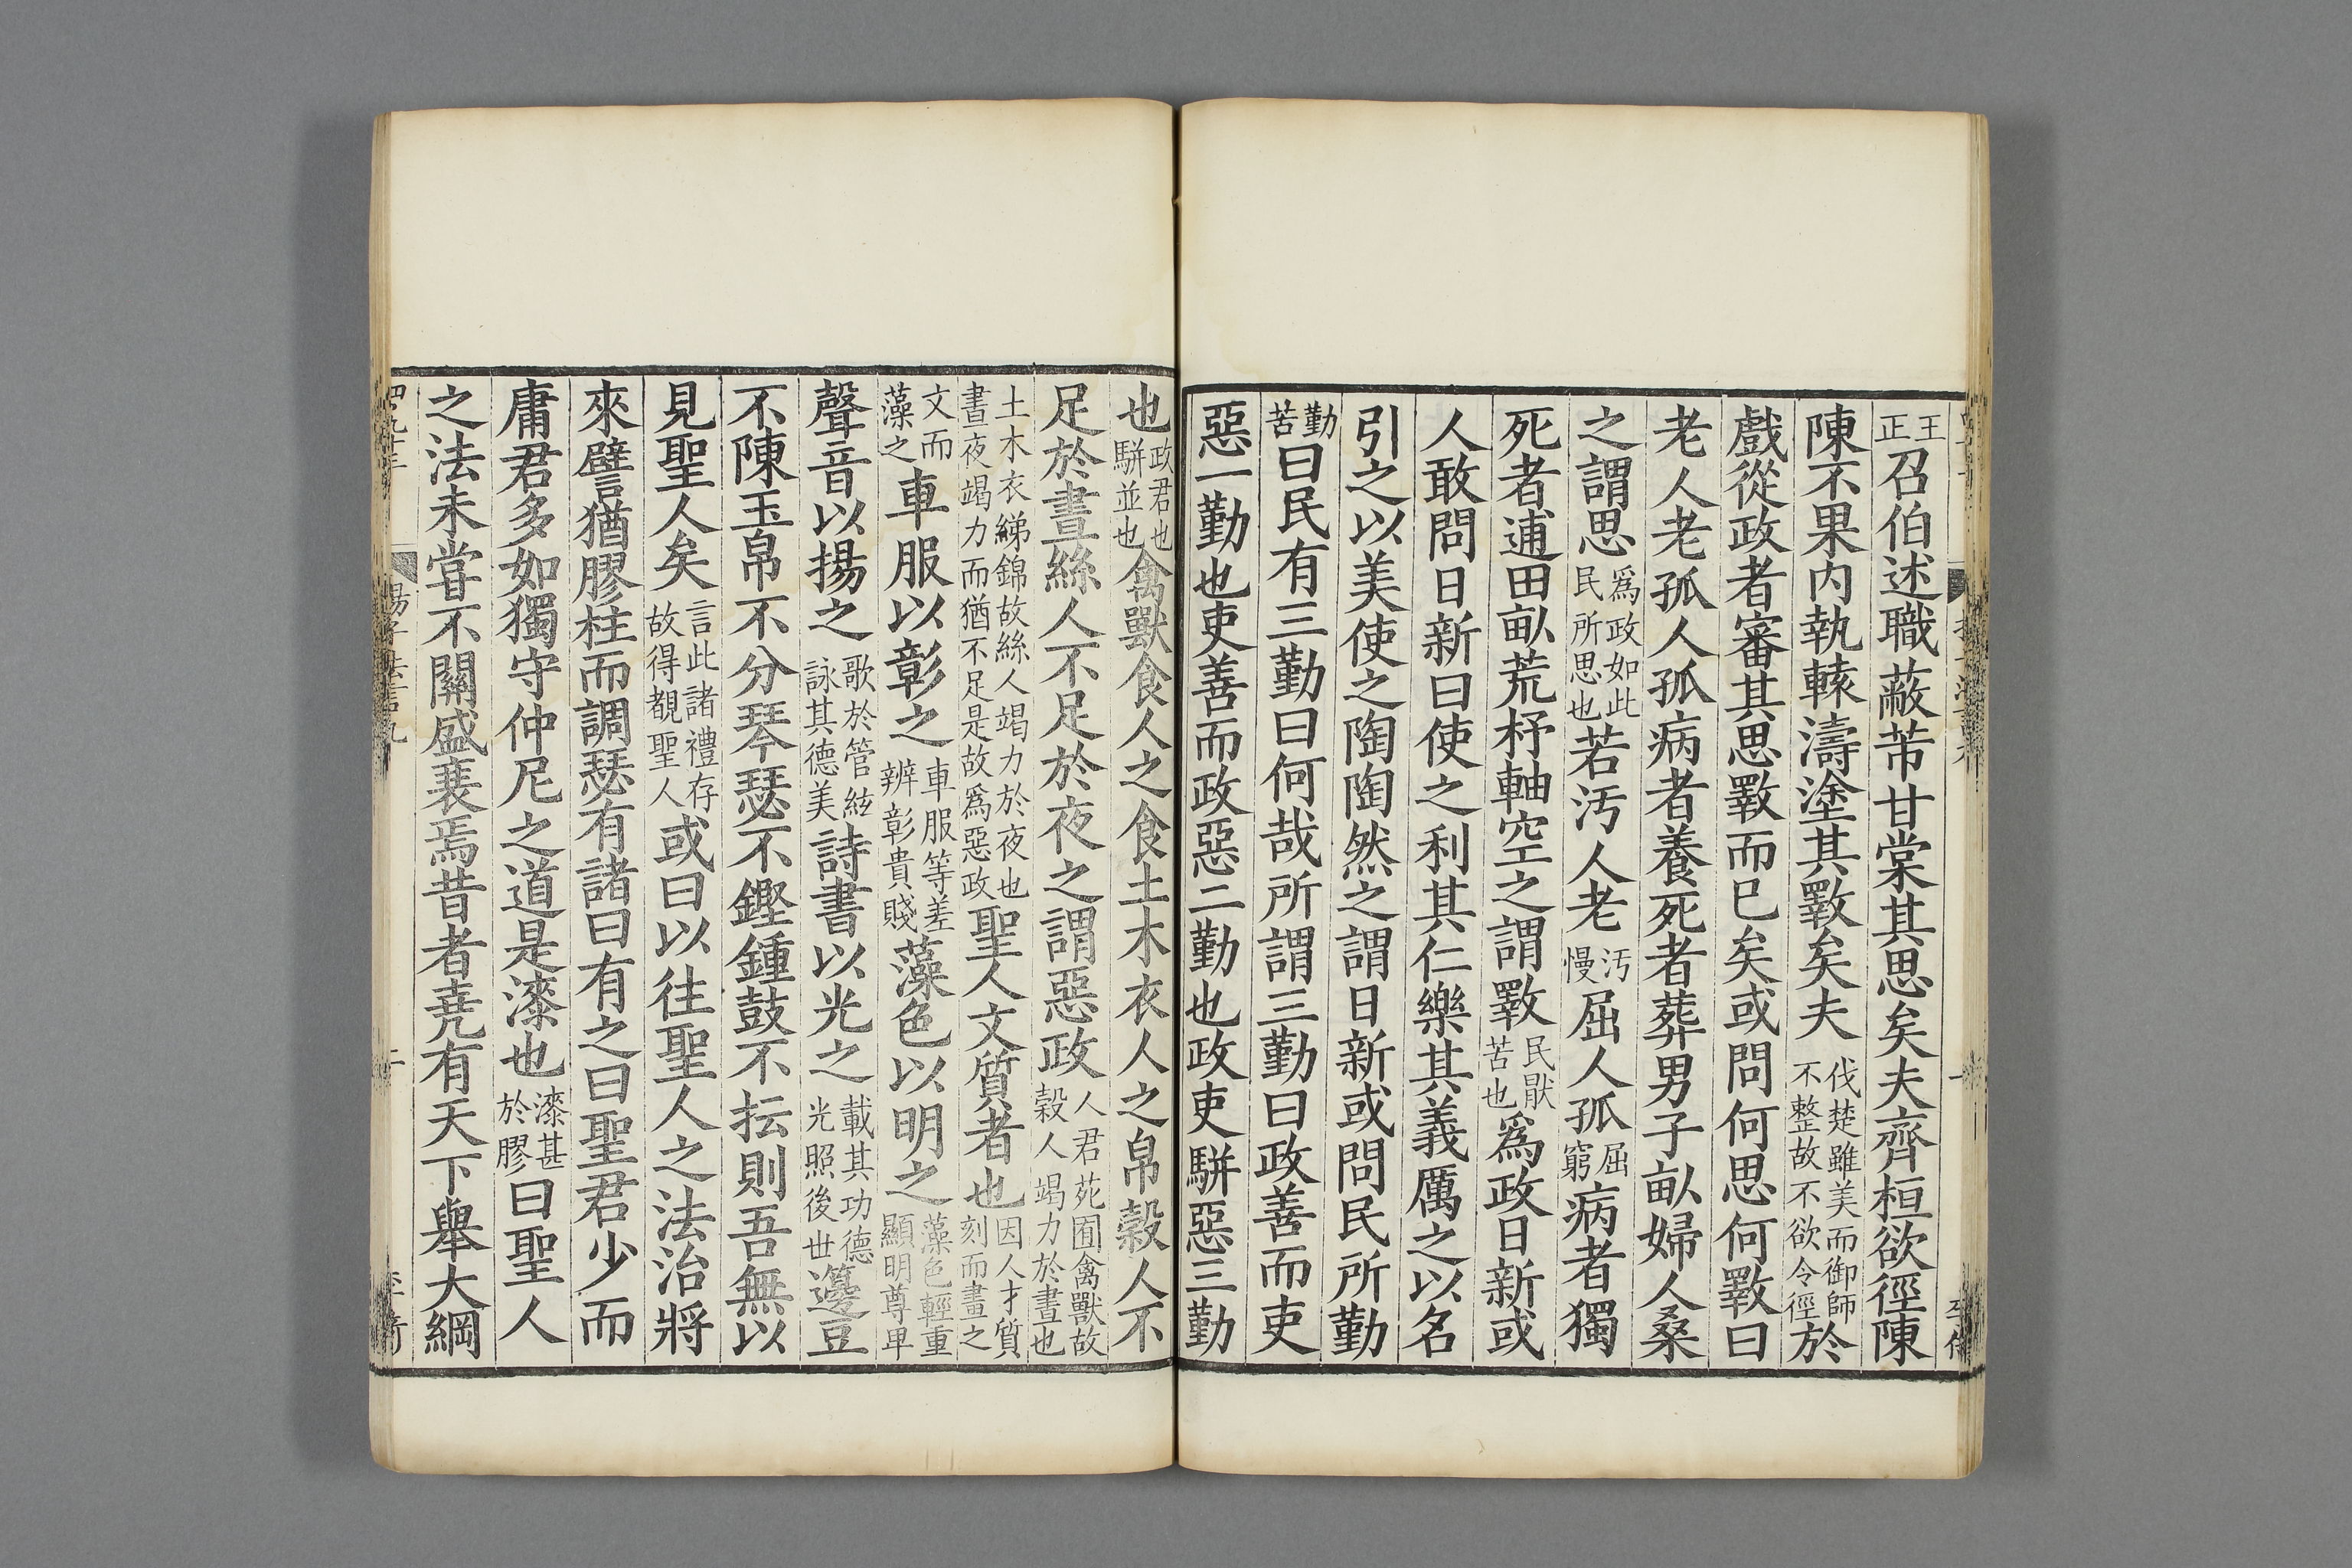 王正召伯述職蔽芾甘棠其思矣夫齊桓欲徑陳
陳不果内執轅濤塗其斁矣夫伐楚雖美而御師不整故不欲令徑於
戲從政者審其思斁而已矣或問何思何斁曰
老人老孤人孤病者養死者葬男子畝婦人桑
之謂思爲政如此民所思也若汚人老汚慢屈人孤屈窮病者獨
死者逋田畝荒杼軸空之謂斁民厭苦也爲政日新或
人敢問日新曰使之利其仁樂其義厲之以名
引之以美使之陶陶然之謂日新或問民所勤
勤苦曰民有三勤曰何哉所謂三勤曰政善而吏
惡一勤也吏善而政惡二勤也政吏駢惡三勤
也政君也駢並也禽獸食人之食土木衣人之帛穀人不
足於晝絲人不足於夜之謂惡政人君苑囿禽獸故穀人竭力於晝也
土木衣綈錦故絲人竭力於夜也晝夜竭力而猶不足是故爲惡政聖人文質者也因人才質刻而畫之
文而藻之車服以彰之車服等差辨彰貴賤藻色以明之藻色輕重顯明尊卑
聲音以揚之歌於管絃詠其德美詩書以光之載其功德光照後世籩豆
不陳玉帛不分琴瑟不鏗鍾鼓不抎則吾無以
見聖人矣言此諸禮存故得覩聖人或曰以往聖人之法治將
來譬猶膠柱而調瑟有諸曰有之曰聖君少而
庸君多如獨守仲尼之道是漆也漆甚於膠曰聖人
之法未嘗不關盛衰焉昔者堯有天下舉大綱